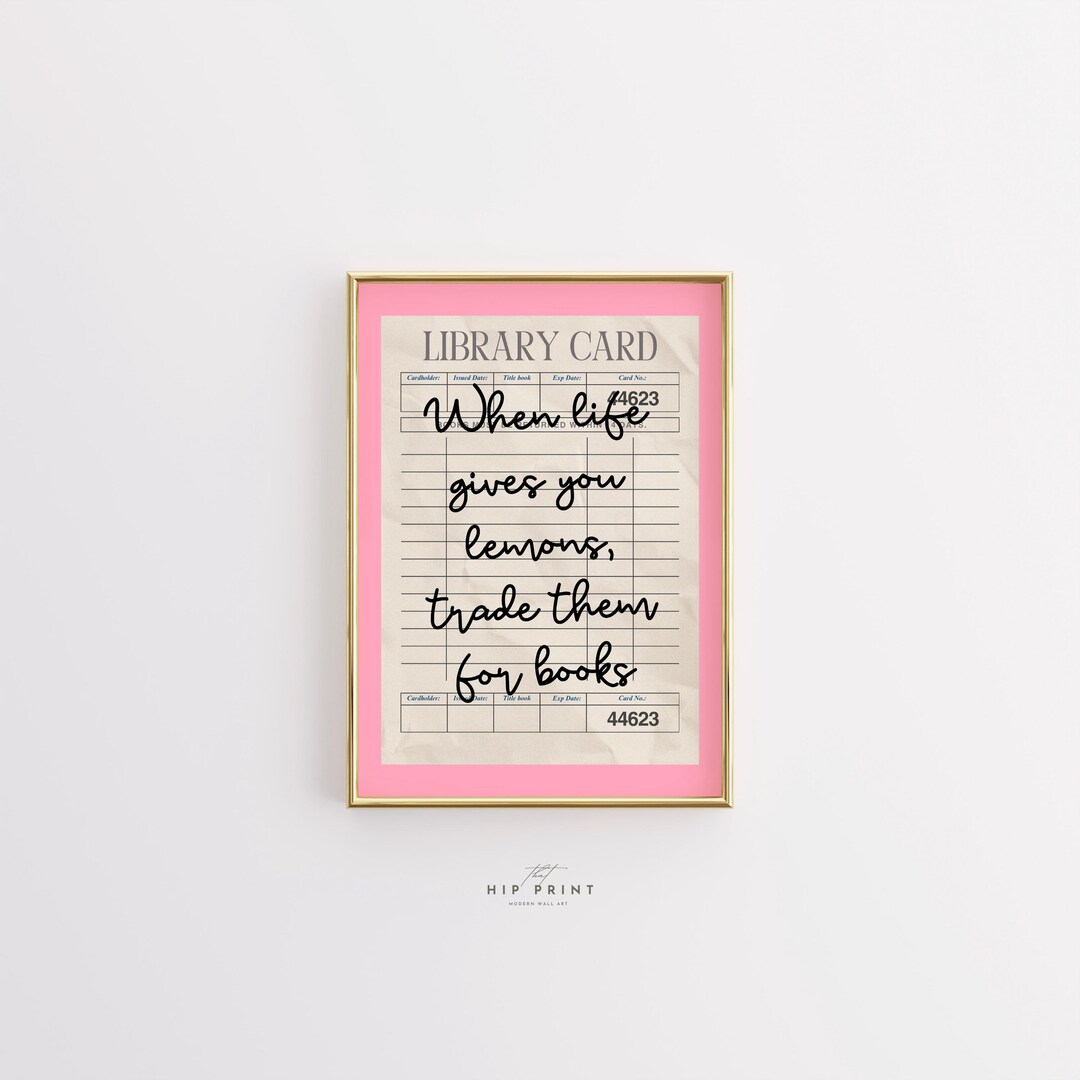 LIBRARY CARD
Cardholder: Issued Date: Title book Exp Date: Card No.:
44623
When life
BOOKS MUST BE RETURNED WITHIN 14 DAYS.
gives you
lemons,
trade them
for books
Cardholder: Issued Date: Title book Exp Date: Card No.:
44623
that
HIP PRINT
MODERN WALL ART